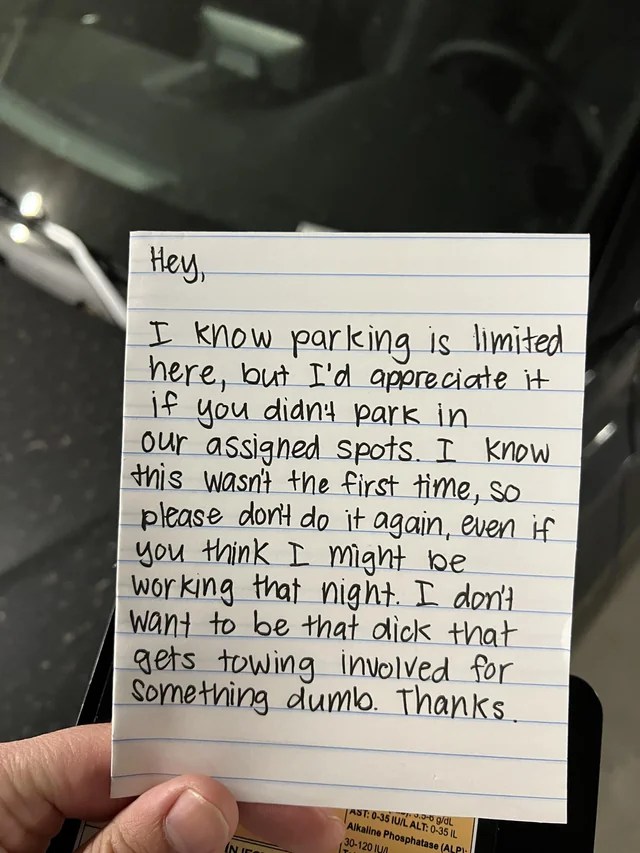 Hey,
I know parking is limited
here, but I'd appreciate it
if you didn't park in
our assigned spots. I know
this wasn't the first time, so
please don't do it again, even if
you think I might be
working that night. I don't
want to be that dick that
gets towing involved for
something dumb. Thanks.
3.5-6 g/dL
AST: 0-35 IU/L ALT: 0-35 IL
Alkaline Phosphatase (ALP):
30-120 IU/l